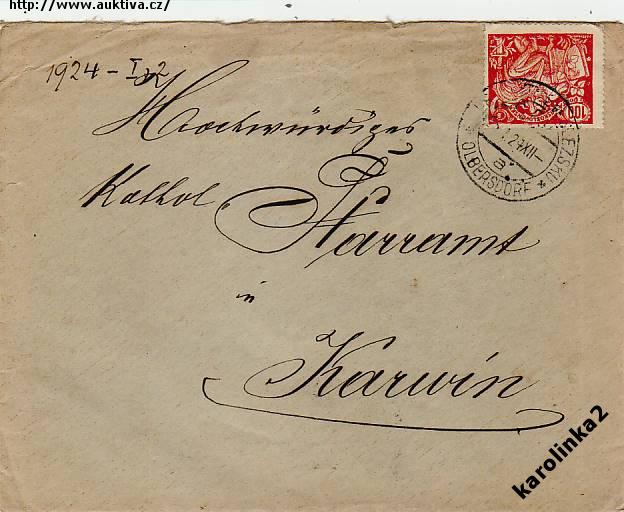 http://www.auktiva.cz/
1924 - I 2
Hochwürdiges
Kathol. Pfarramt
in
Karwin
OLBERSDORF
karolinka2